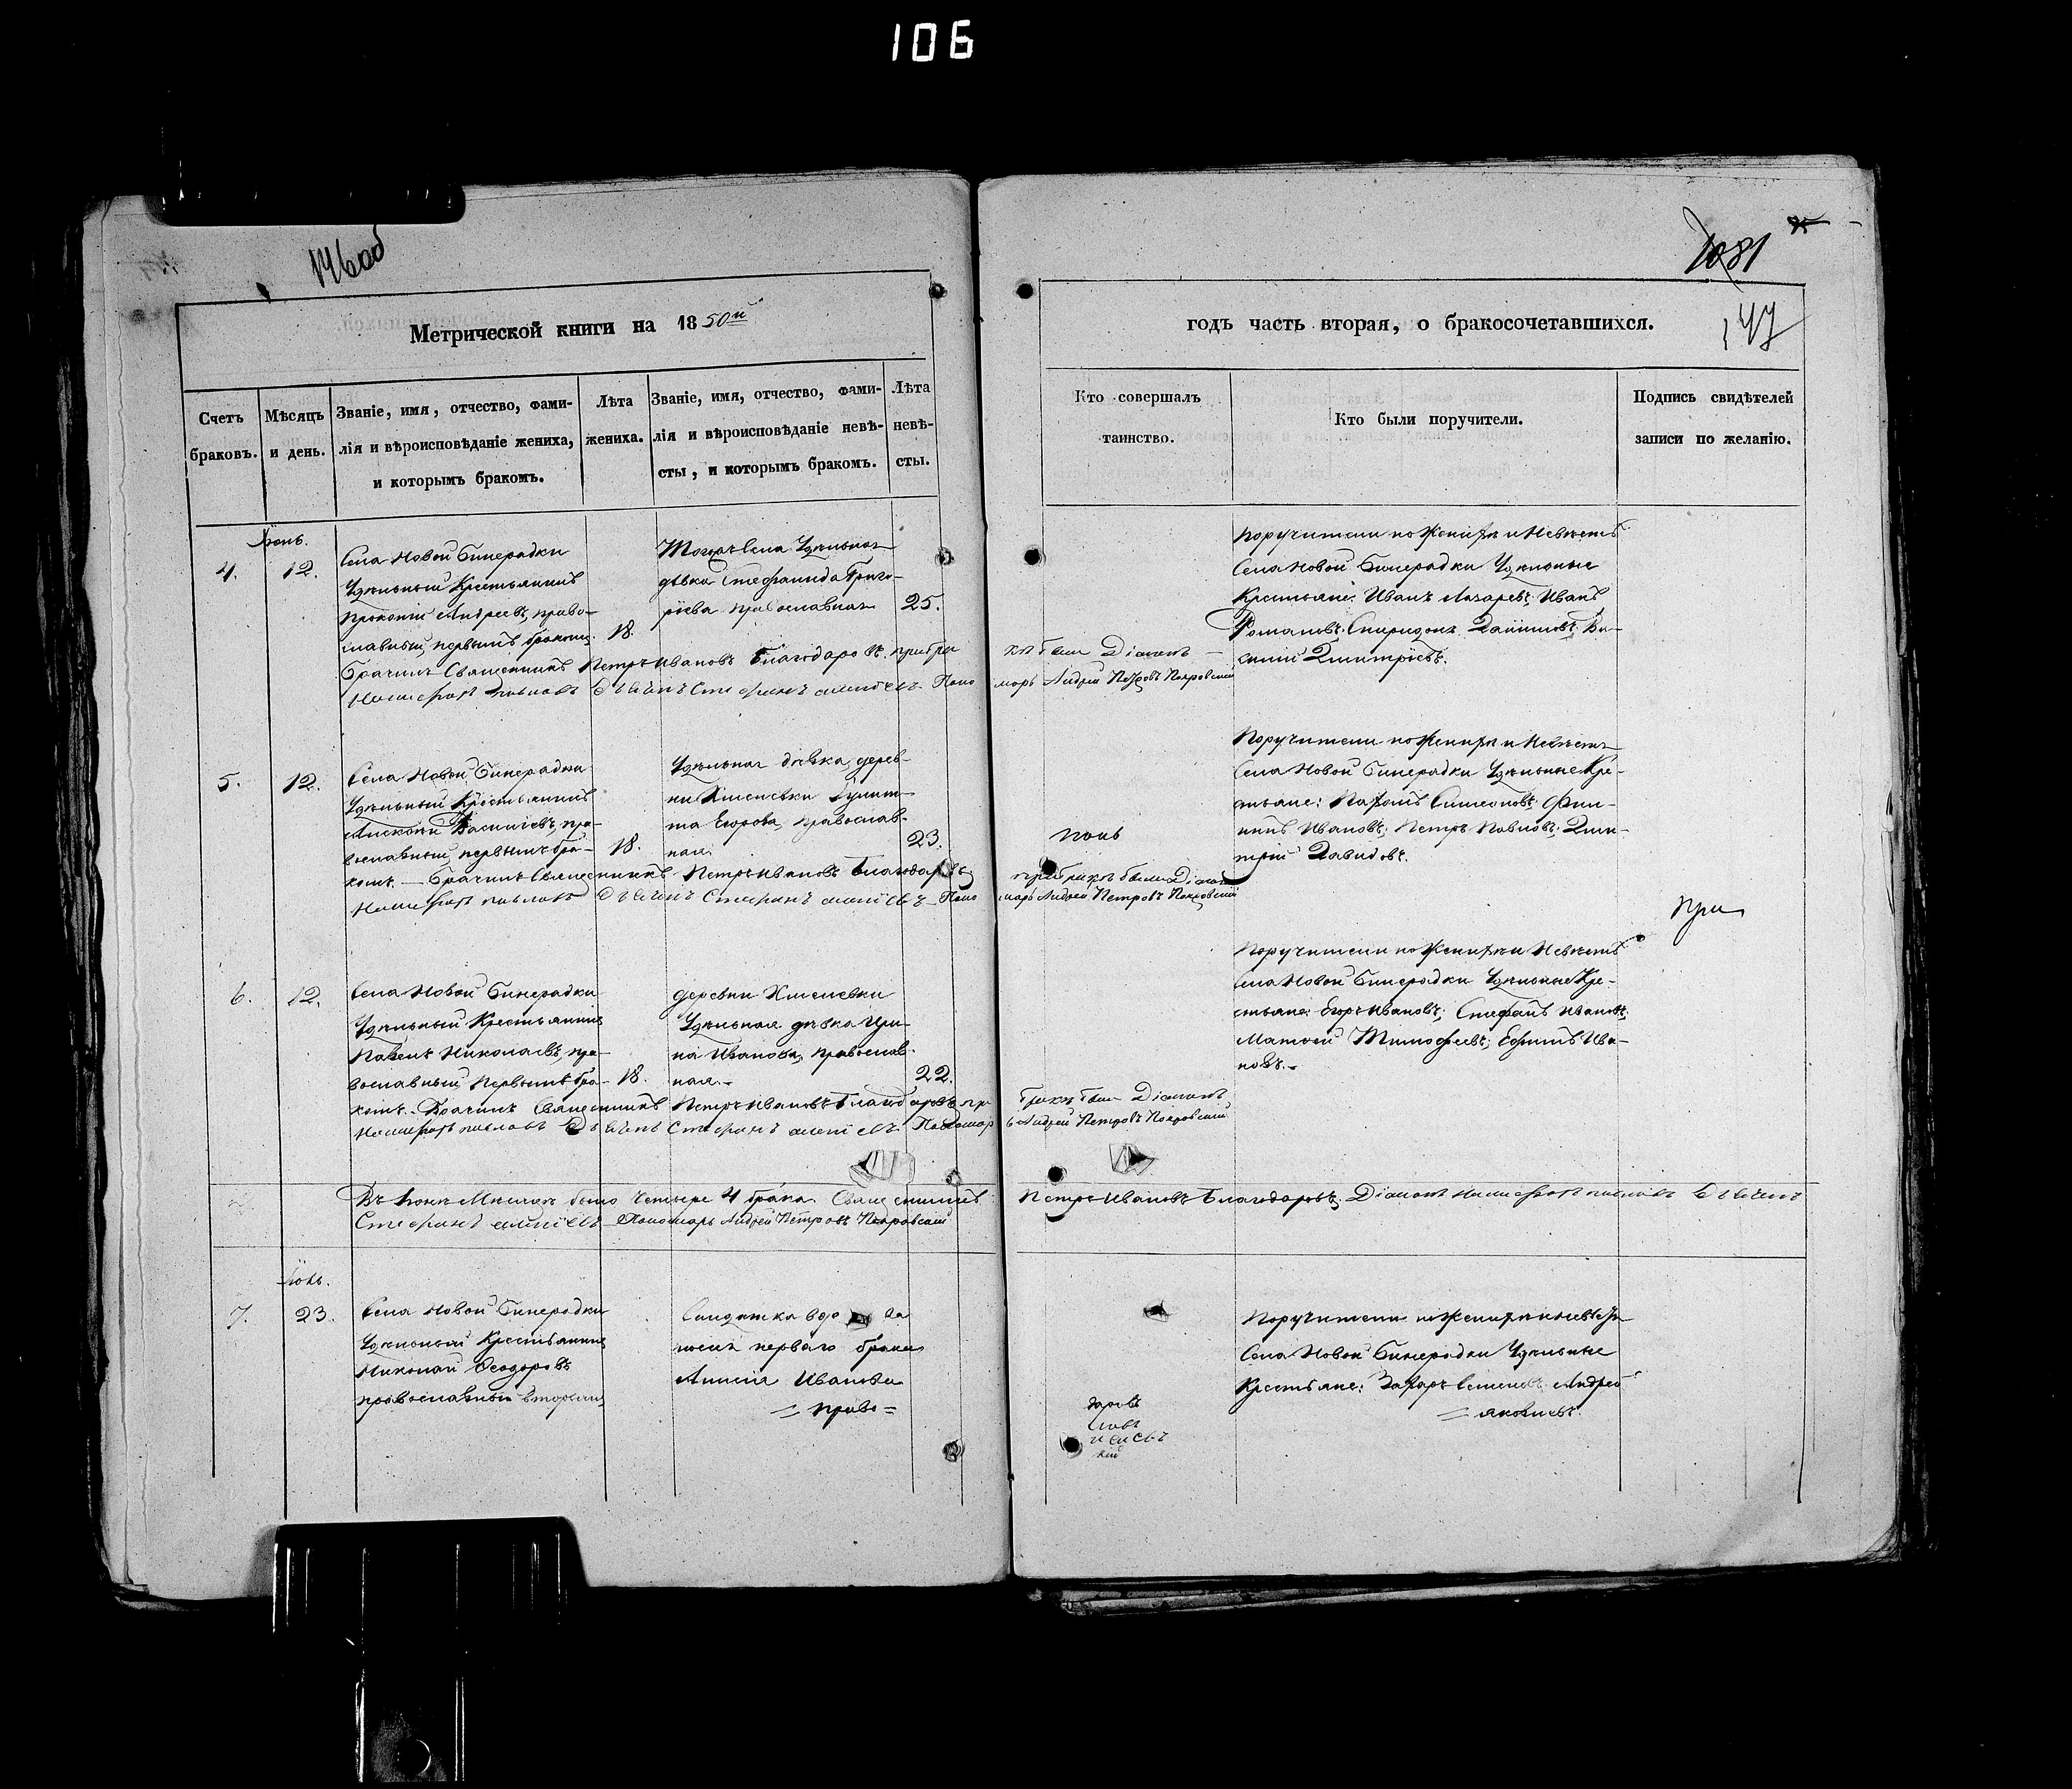 106
146 об
1081
147
Метрической книги на 1850й
годъ часть вторая, о бракосочетавшихся.
Счетъ браковъ.
Мѣсяцъ и день.
Званіе, имя, отчество, фами-
лія и вѣроисповѣданіе жениха,
и которымъ бракомъ.
Лѣта жениха.
Званіе, имя, отчество, фами-
лія и вѣроисповѣданіе невѣ-
сты, и которымъ бракомъ.
Лѣта невѣ-
сты.
Кто совершалъ
таинство.
Кто были поручители.
Подпись свидѣтелей
записи по желанію.
Іюнь.
4.
12.
Села Новой Бинерадки
Удѣльный Крестьянинъ
Прокопій Андреевъ, право-
славный, первымъ бракомъ.
18.
Тогоже Села Удѣльная
дѣвка Стефанида Григо-
рьева православная
25.
Брачилъ Священникъ Петръ Ивановъ Благодаровъ. при бра
кѣ были Діаконъ
Павловъ Дьячекъ Стефанъ Поно
марь Андрей Петровъ Покровский
Поручители по Женихѣ и Невѣстѣ
Села Новой Бинерадки Удѣльные
Крестьяне: Иванъ Лазаревъ, Иванъ
Романовъ, Спиридонъ Даниловъ, Ва-
силій Дмитріевъ.
5.
12.
Села Новой Бинерадки
Удѣльный Крестьянинъ
Василіевъ, пра-
вославный, первымъ бра-
комъ.
18.
Удѣльная дѣвка, дерев-
ни Хмелевки Улит-
та Егорова, православ-
ная.
23.
Брачилъ Священникъ Петръ Ивановъ Благодаровъ
при бракѣ были Діаконъ
Павловъ Дьячекъ Стефанъ Поно
марь Андрей Петровъ Покровский
Поручители по Женихѣ и Невѣстѣ
Села Новой Бинерадки Удѣльные Кре-
стьяне: Симеоновъ, Фил-
липъ Ивановъ, Петръ Павловъ, Дми-
трій Давидовъ.
при
6.
12.
Села Новой Бинерадки
Удѣльный Крестьянинъ
Павелъ Николаевъ, пра-
вославный первымъ бра-
комъ.
18.
деревни Хмелевки
Удѣльная дѣвка Ири-
на Иванова, православ-
ная.
22.
Брачилъ Священникъ Петръ Ивановъ Благодаровъ при
бракѣ были Діаконъ
Павловъ Дьячекъ Стефанъ Пономар
ь Андрей Петровъ Покровский
Поручители по Женихѣ и Невѣстѣ
Села Новой Бинерадки Удѣльные Кре-
стьяне: Егоръ Ивановъ, Стефанъ Ивановъ,
Матвей Тимофеевъ, Ефимъ Ива-
новъ.
Въ Іюнѣ Мѣсяцѣ было Четыре 4 брака Священникъ Петръ Ивановъ Благодаровъ, Діаконъ Павловъ Дьячекъ
Стефанъ Пономарь Андрей Петровъ Покровский
Іюль.
7.
23.
Села Новой Бинерадки
Удѣльный Крестьянинъ
Николай Феодоровъ
православный вторымъ
Солдатка вдова
послѣ перваго брака
Иванова
= право =
даровъ
ловъ
кий
Поручители по Женихѣ и Невѣстѣ
Села Новой Бинерадки Удѣльные
Крестьяне: Захаръ Семеновъ Андрей
= Яковлевъ.